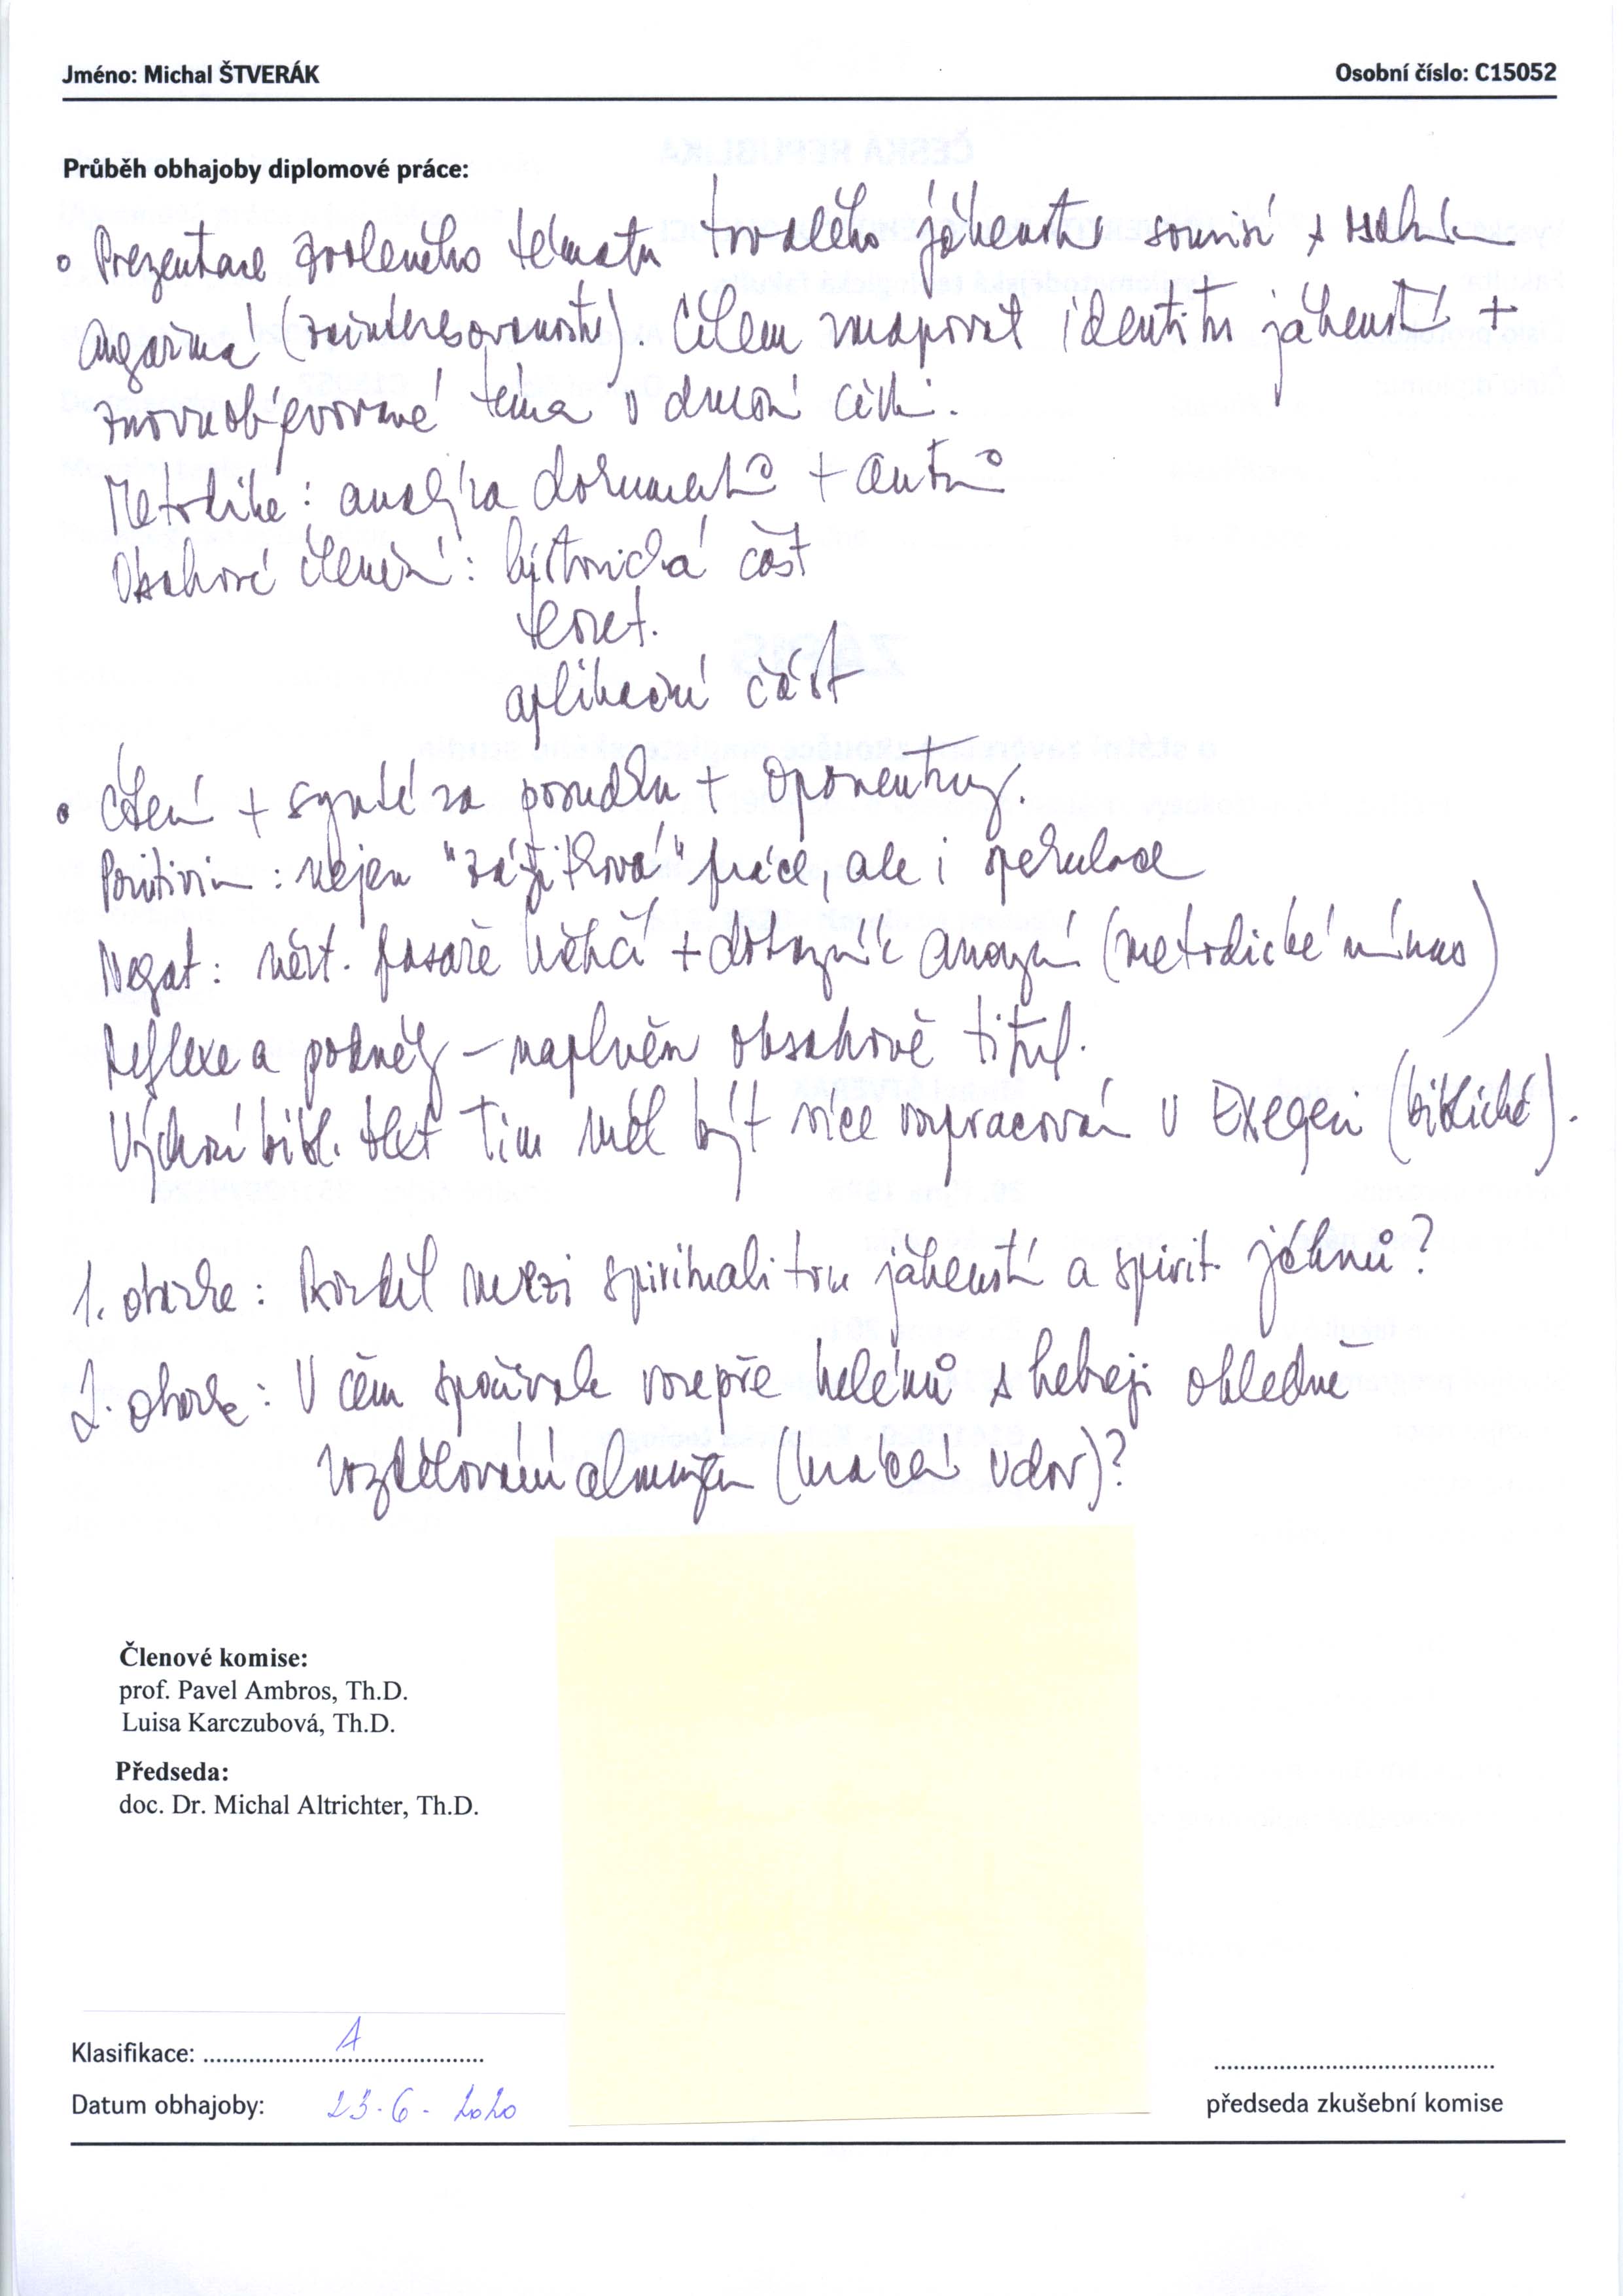 Jméno: Michal ŠTVERÁK
Osobní číslo: C15052
Průběh obhajoby diplomové práce:
• Prezentace zvoleného tématu trvalého jáhenství souvisí s
(zainteresovanosti). Cílem zmapovat identitu jáhenství +
znovuobjevované téma v dnešní církvi.
Metodika: analýza dokumentů + autorů
Obsahové členění: historická část
teoret.
aplikační část
• Čtení + syntéza posudku + oponentury.
Pozitivum: nejen "zážitková" práce, ale i spekulace
Negat: některé pasáže lehčí + dotazník anonymní (metodické mínus)
Reflexe a podněty – naplněn obsahově titul.
Výchozí bibl. text Tim měl být více vypracován v Exegezi (biblické).
1. otázka: Rozdíl mezi spiritualitou jáhenství a spirit. jáhnů?
2. otázka: V čem spočívala rozepře helénů s hebreji ohledně
rozdělování almužen (kráceni vdov)?
Členové komise:
prof. Pavel Ambros, Th.D.
Luisa Karczubová, Th.D.
Předseda:
doc. Dr. Michal Altrichter, Th.D.
Klasifikace: A
Datum obhajoby: 23.6. 2020
předseda zkušební komise